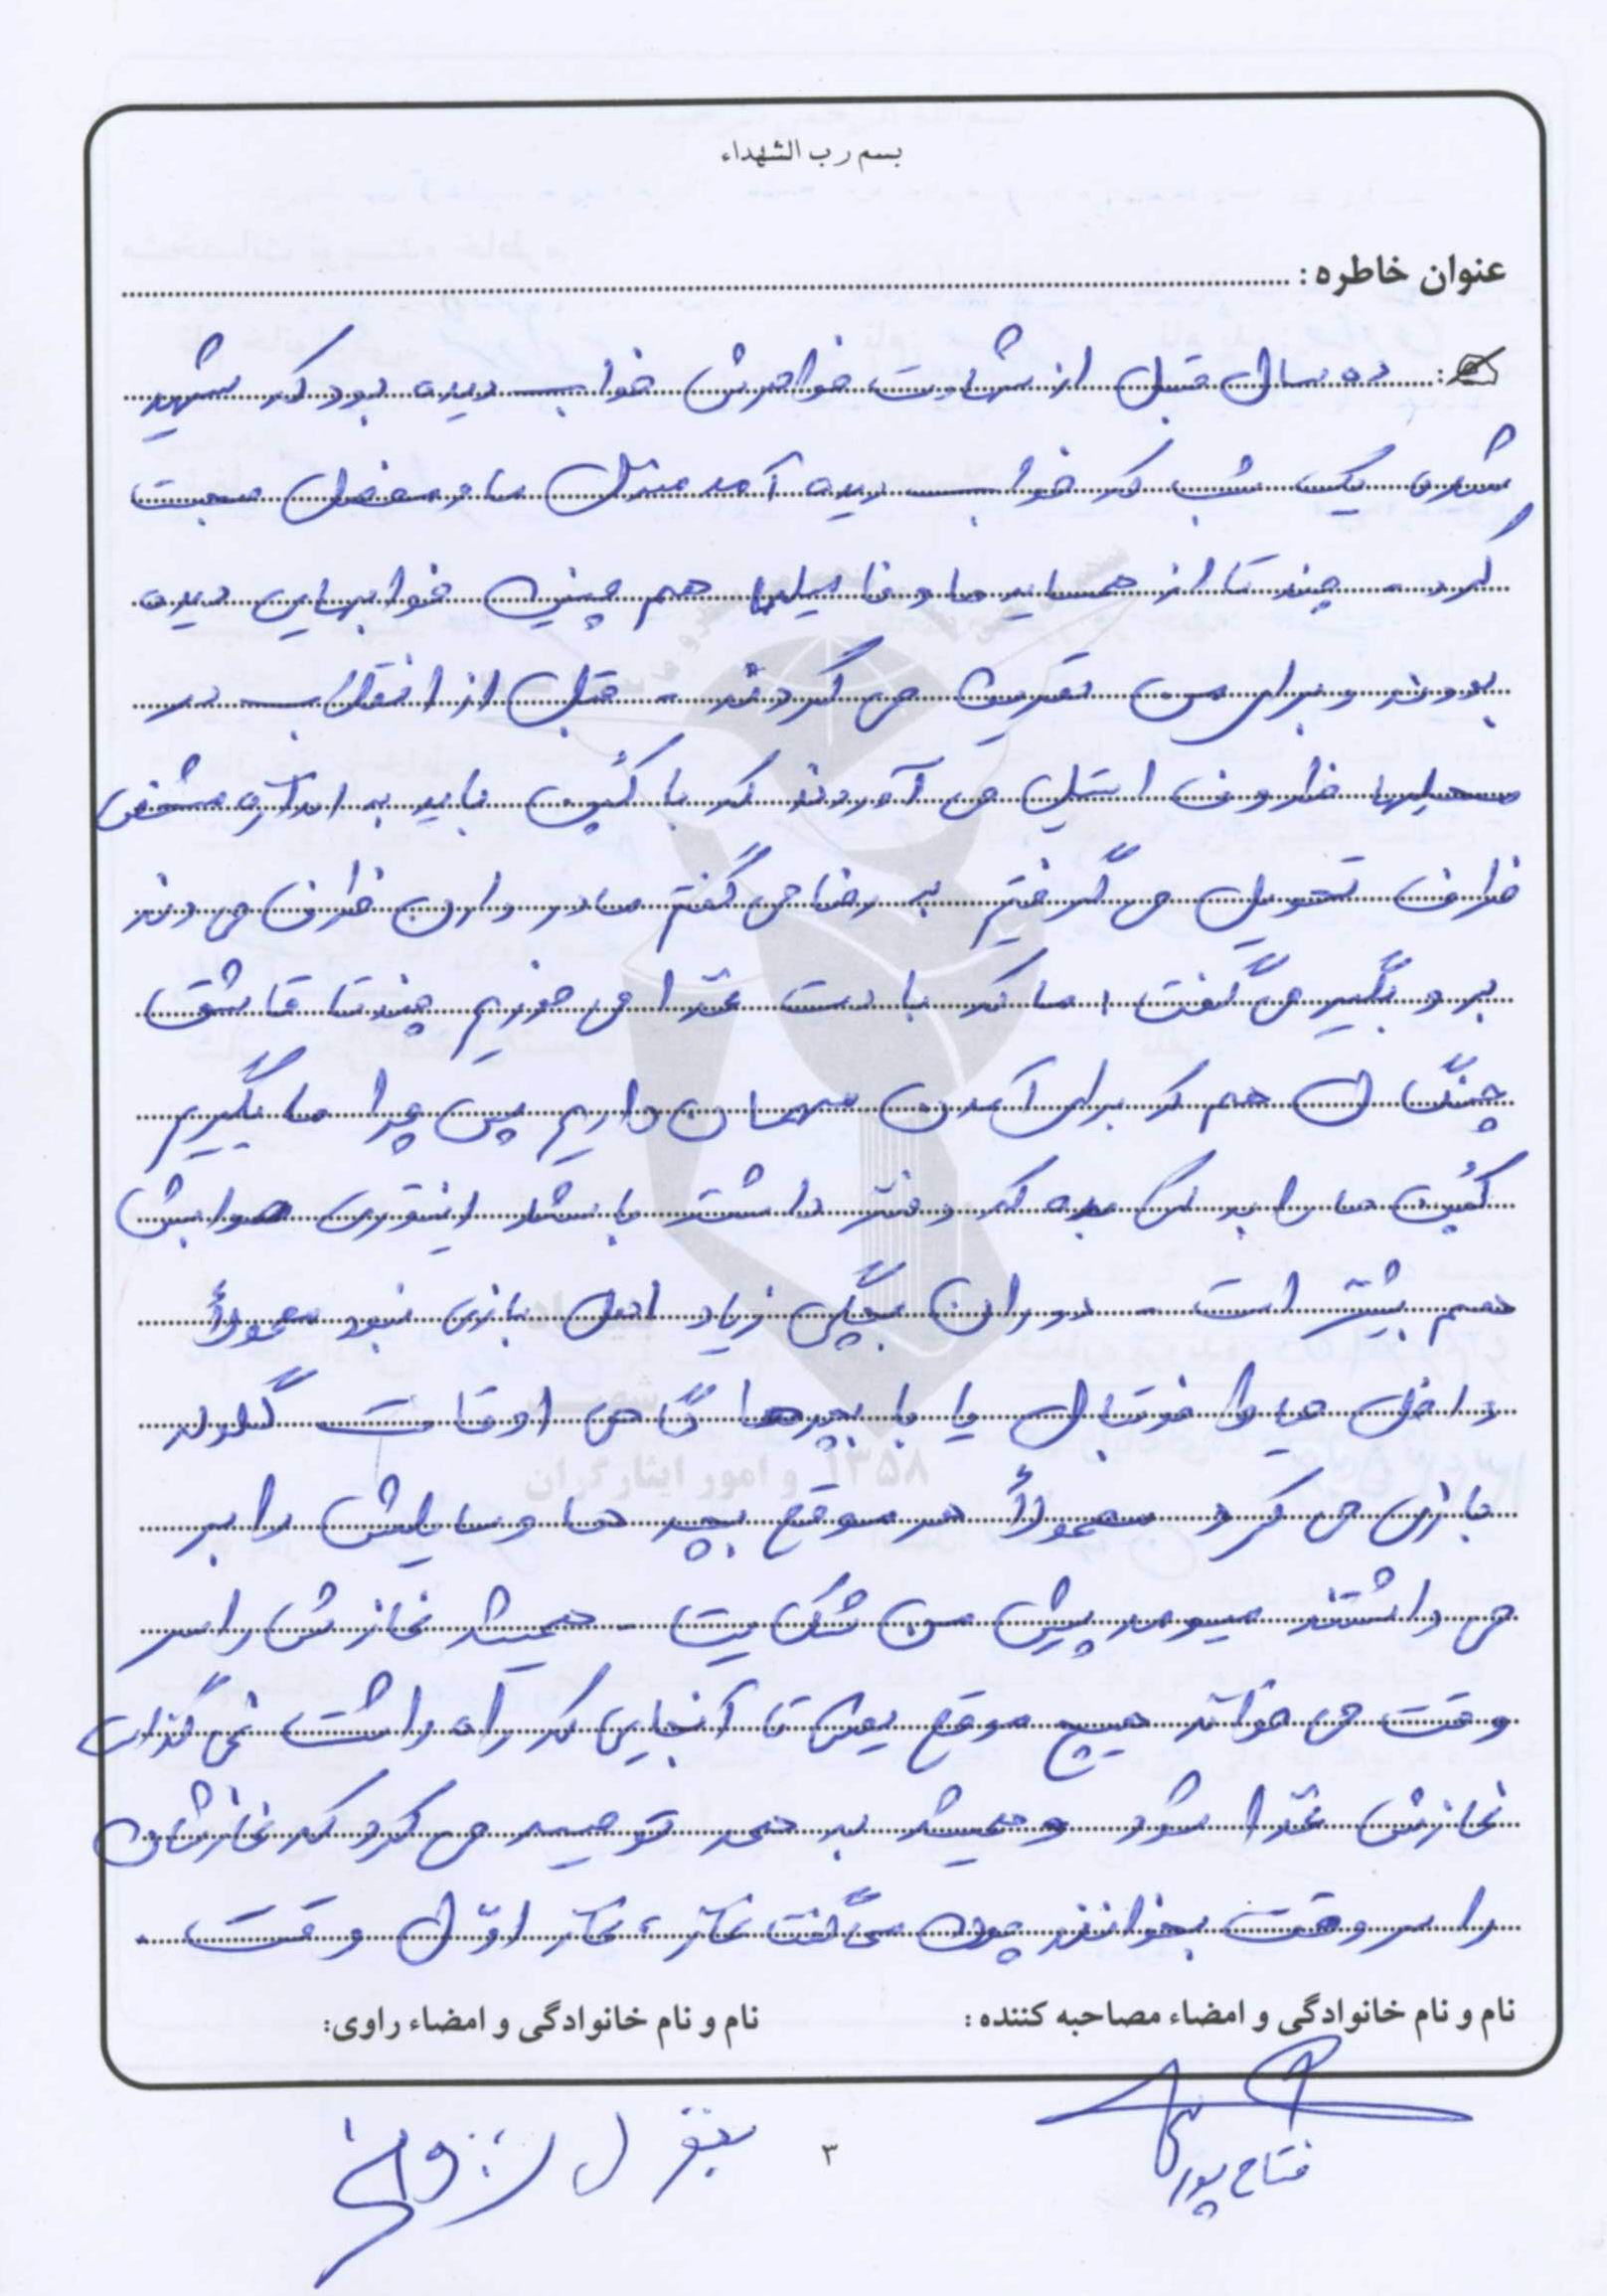 بسم رب الشهداء
عنوان خاطره :
ده سال قبل از شهادت خواهرش خواب دیده بود که شهید
شده یک شب که خواب دیده آمد منزل ما و مفصل صحبت
کرد - چند تا از همسایه ها و فامیلها هم چنین خوابهایی دیده
بودند و برای من تعریف می کردند - قبل از انقلاب در
محلها ظروف استیل می آوردند که با کُپن باید به اندازه مشخص
ظرف تحویل می گرفتیم به رضا می گفتم مادر دارن ظرف می دند
برو بگیر می گفت ، ما که با دست غذا می خوریم چندتا قاشق
چنگال هم که برای آمدن مهمان داریم پس چرا ما بگیریم
کُپن ما را به کسی بده که دختر داشته باشد اینتوری صوابش
هم بیشتر است - دوران بچگی زیاد اهل بازی نبود معمولاً
داخل حیاط فوتبال یا با بچه ها گاهی اوقات گلوله
بازی می کرد معمولاً هر موقع بچه ها وسایلش را بر
می داشتند میومد پیش من شکایت - همیشه نمازش را سر
وقت می خواند هیچ موقع یعنی تا آنجایی که راه داشت نمی گذاشت
نمازش غذا شود و همیشه به همه توصیه می کرد که نمازشان
را سر وقت بخوانند چون می گفت نماز ، نماز اوّل وقت .
نام و نام خانوادگی و امضاء مصاحبه کننده :
نام و نام خانوادگی و امضاء راوی:
فتاح پور
۳
۱۳۵۸
و امور ایثارگران